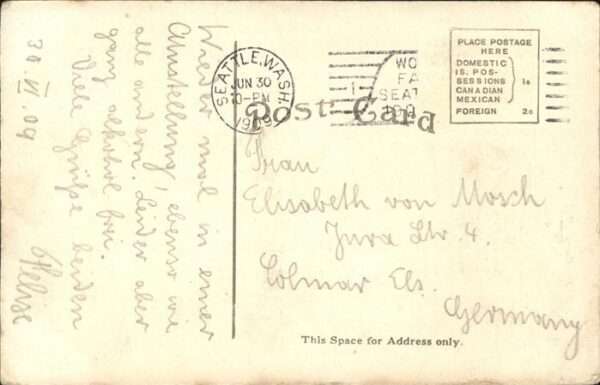 Wieder mal in einer
Ausstellung! ebenso wie
alle andern. Leider aber
ganz alkohol frei.
Viele Grüße beiden
30.VI.09
SEATTLE, WASH.
JUN 30
10-PM
1909
WO
FA
SEAT
190
Post Card
PLACE POSTAGE
HERE
DOMESTIC
IS. POS-
SESSIONS
CANADIAN
MEXICAN
1c
FOREIGN 2c
Frau
Elisabeth von Mosch
Jura Str. 4.
Colmar Els.
Germany
This Space for Address only.